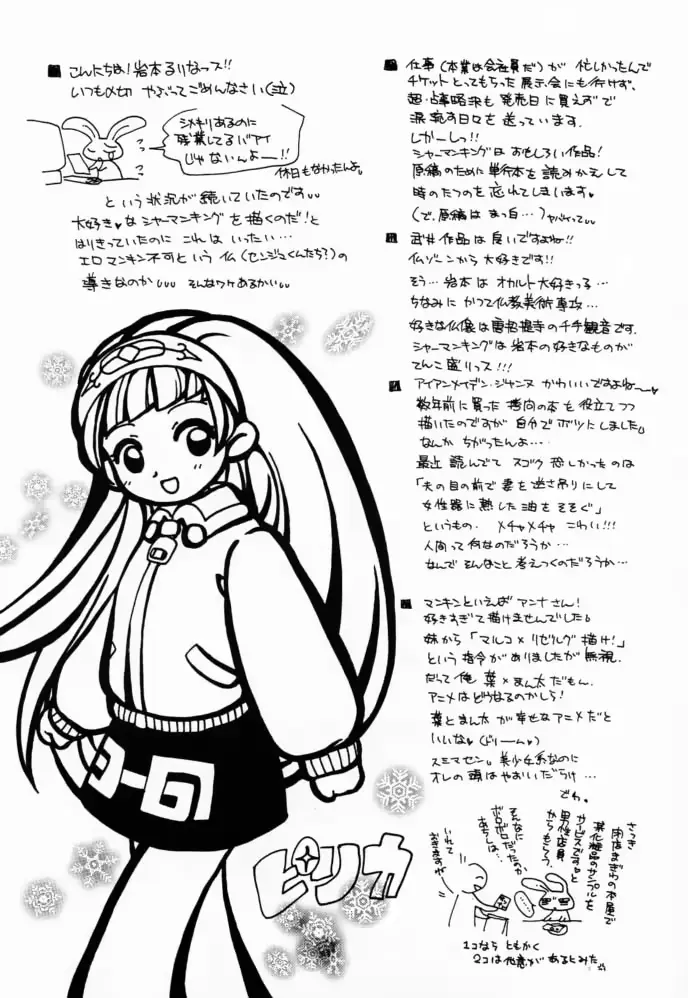 こんにちは!岩本るりなっス!!
いつも〆切 やぶってごめんなさい(泣)
シメキリあるのに
残業してるバアイ
じゃないんよー!!
休日もなかったんよ。
という状況が続いていたのです
大好き♥なシャーマンキングを描くのだ!と
はりきっていたのに これはいったい…
エロマンキン不可という仏(センジュくんたち?)の
導きなのか そんなワケあるかい
仕事(本業は会社員だ)が 忙しかったんで
チケットとってもらった展示会にも行けず、
超・占事略決も 発売日に買えずで
涙 乾す日々を 送っています。
しかーしっ!!
シャーマンキングは おもしろい作品!
原稿のために 単行本を読みかえして
時のたつのを 忘れてしまいます♥
(で、原稿は まっ白…)ヤバイって
武井作品は良いですよねー!!
仏ゾーンから大好きです!!
そう…岩本は オカルト大好きっ子…
ちなみに かつて仏教美術専攻…
好きな仏像は唐招提寺の千手観音です。
シャーマンキングは岩本の好きなものが
てんこ盛りっス!!!
アイアンメイデン・ジャンヌ かわいいですよねー〜♥
数年前に買った 拷問の本を役立てつつ
描いたのですが 自分でボツにしました。
なんか ちがったんよ…
最近 読んでて スゴク 恐しかったのは
「夫の目の前で 妻を逆さ吊りにして
女性器に熱した油をそそぐ」
というもの。 メチャメチャ こわい!!!
人間って何なのだろうか…
なんで そんなこと 考えつくのだろうか…
マンキンといえば アンナさん!
好きすぎて描けませんでした。
妹から「マルコ×リゼルグ描け!」
という指令がありましたが 無視。
だって俺 葉×まん太だもん。
アニメはどうなるのかしら!
葉とまん太が幸せなアニメだと
いいな♥(ドリーム♥)
スミマセン。美少女系なのに
オレの頭はやおいだらけ…
でわ。
さっき
閉店まぎわの本屋で
某化粧品のサンプルを
サービスですと
男性店員
からもらう。
そんなに
ボロボロだったのか
あちしは…
いれて
おきますが
1コなら ともかく
2コは他意があるとみた。
ピリカ